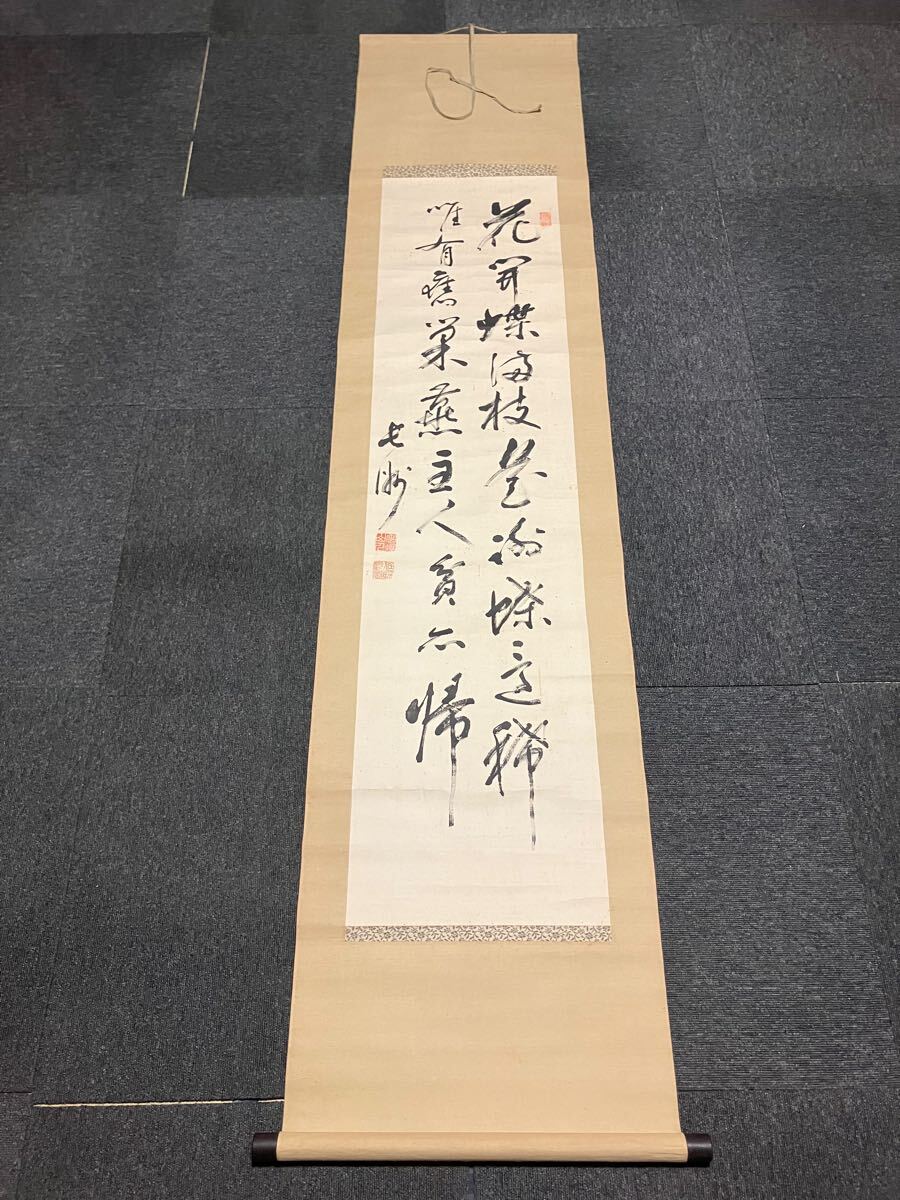 花開蝶満枝花謝蝶還稀
唯有舊巣燕主人貧亦帰
長洲